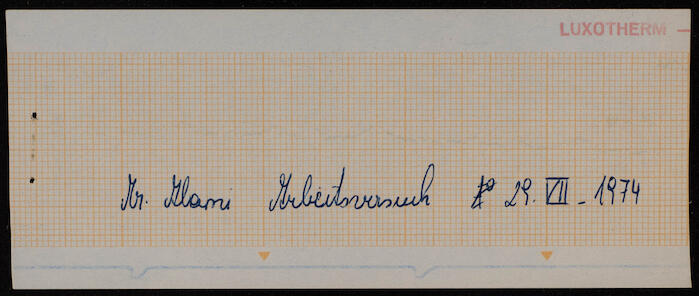 LUXOTHERM –
Mr. Alami Arbeitsversuch 29. VII - 1974